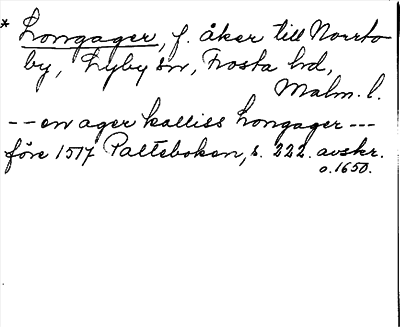 * Longager, f. åker till Norrto
by, Lyby sn, Frosta hd,
Malm. l.
-- en ager kalliss Longager ---
före 1517 Palteboken, s. 222. avskr.
o. 1650.